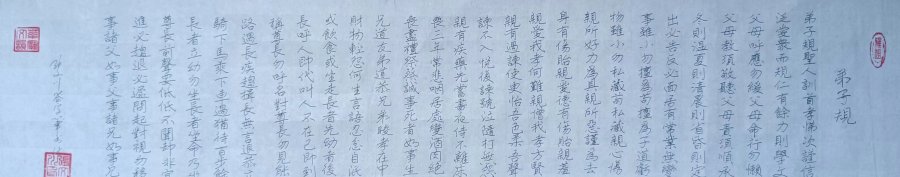 弟子規
弟子規聖人訓首孝悌次謹信
泛愛眾而親仁有餘力則學文
父母呼應勿緩父母命行勿懶
父母教須敬聽父母責須順承
冬則溫夏則凊晨則省昏則定
出必告反必面居有常業無變
事雖小勿擅為苟擅為子道虧
物雖小勿私藏苟私藏親心傷
親所好力為具親所惡謹為去
身有傷貽親憂德有傷貽親羞
親愛我孝何難親憎我孝方賢
親有過諫使更怡吾色柔吾聲
諫不入悅復諫號泣隨撻無怨
親有疾藥先嘗晝夜侍不離床
喪三年常悲咽居處變酒肉絕
喪盡禮祭盡誠事死者如事生
兄道友弟道恭兄弟睦孝在中
財物輕怨何生言語忍忿自泯
或飲食或坐走長者先幼者後
長呼人即代叫人不在己即到
稱尊長勿呼名對尊長勿見能
路遇長疾趨揖長無言退恭立
騎下馬乘下車過猶待百步餘
長者立幼勿坐長者坐命乃坐
尊長前聲要低低不聞卻非宜
進必趨退必遲問起對視勿移
事諸父如事父事諸兄如事兄